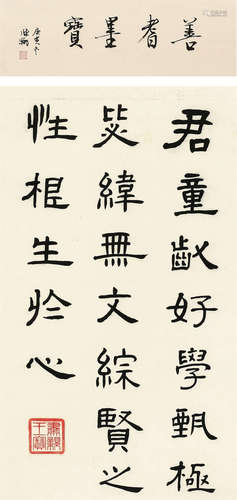 善耆墨寶
庚寅冬
君童齔好學甄極
毖緯無文綜賢之
性根生於心
肅親王寶